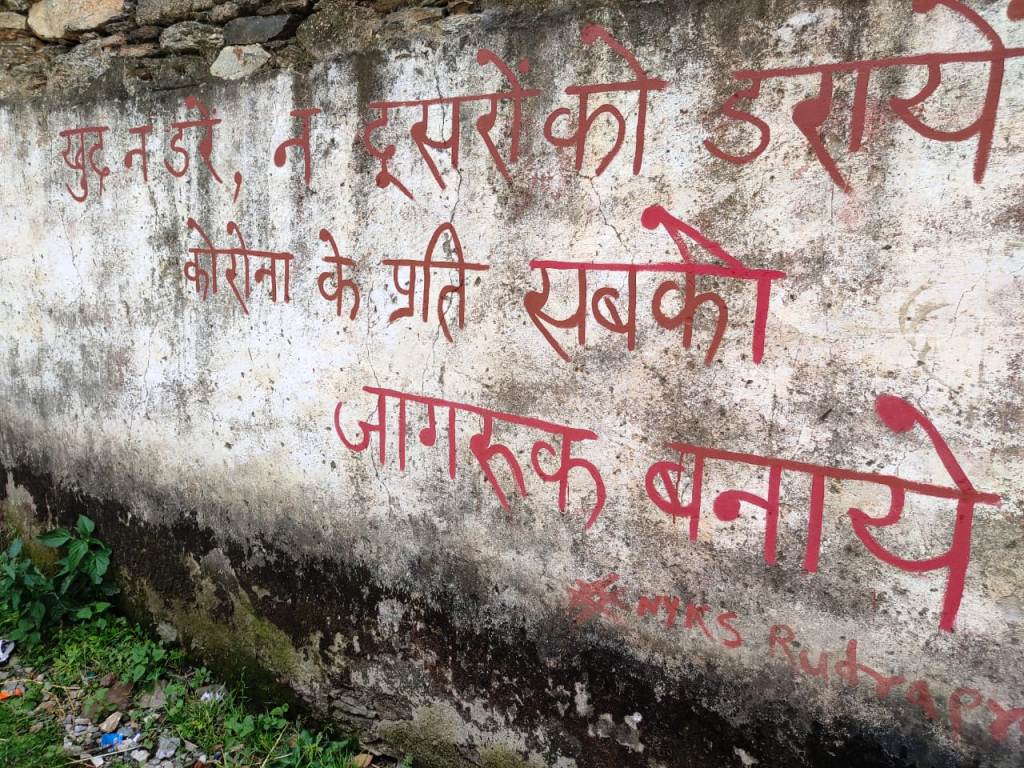 खुद न डरे, न दूसरों को डराये
कोरोना के प्रति सबको
जागरूक बनाये
NYKS Rudrapr